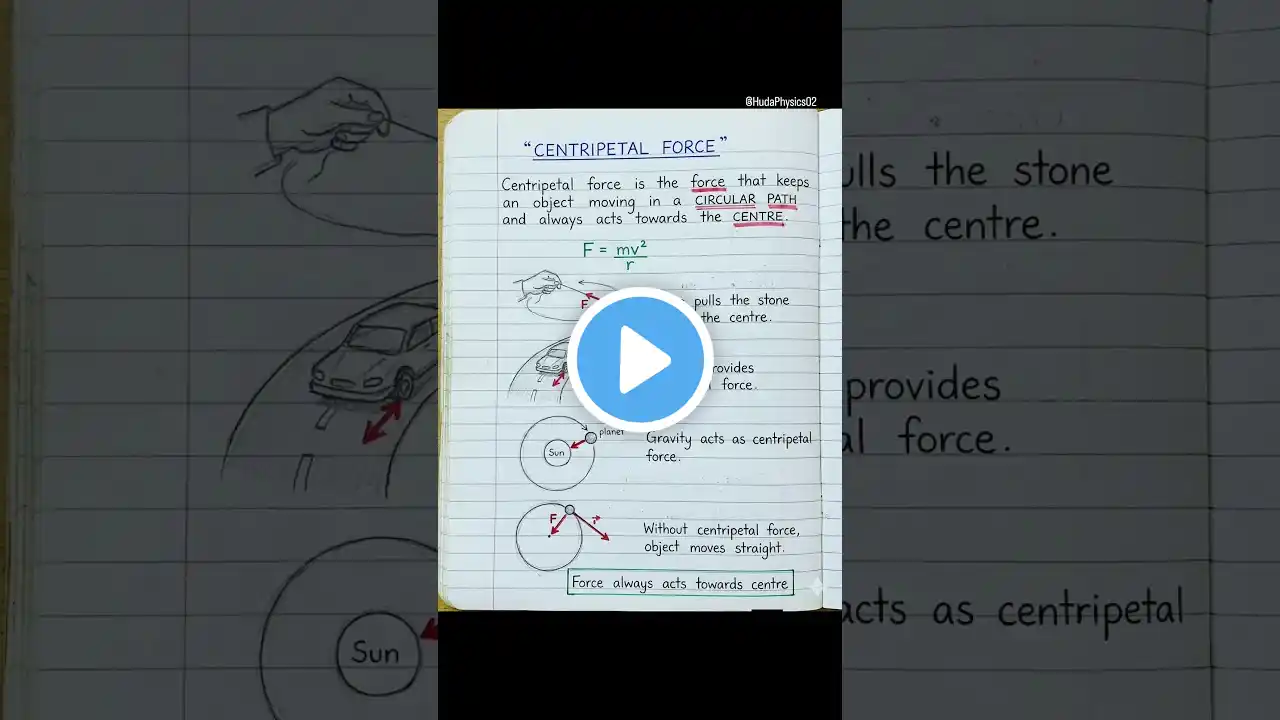 @HudaPhysics02
"CENTRIPETAL FORCE"
Centripetal force is the force that keeps
an object moving in a CIRCULAR PATH
and always acts towards the CENTRE.
F = mv²
r
F
pulls the stone
the centre.
provides
force.
planet
Sun
Gravity acts as centripetal
force.
F
Without centripetal force,
object moves straight.
Force always acts towards centre
ulls the stone
the centre.
provides
al force.
Sun
acts as centripetal